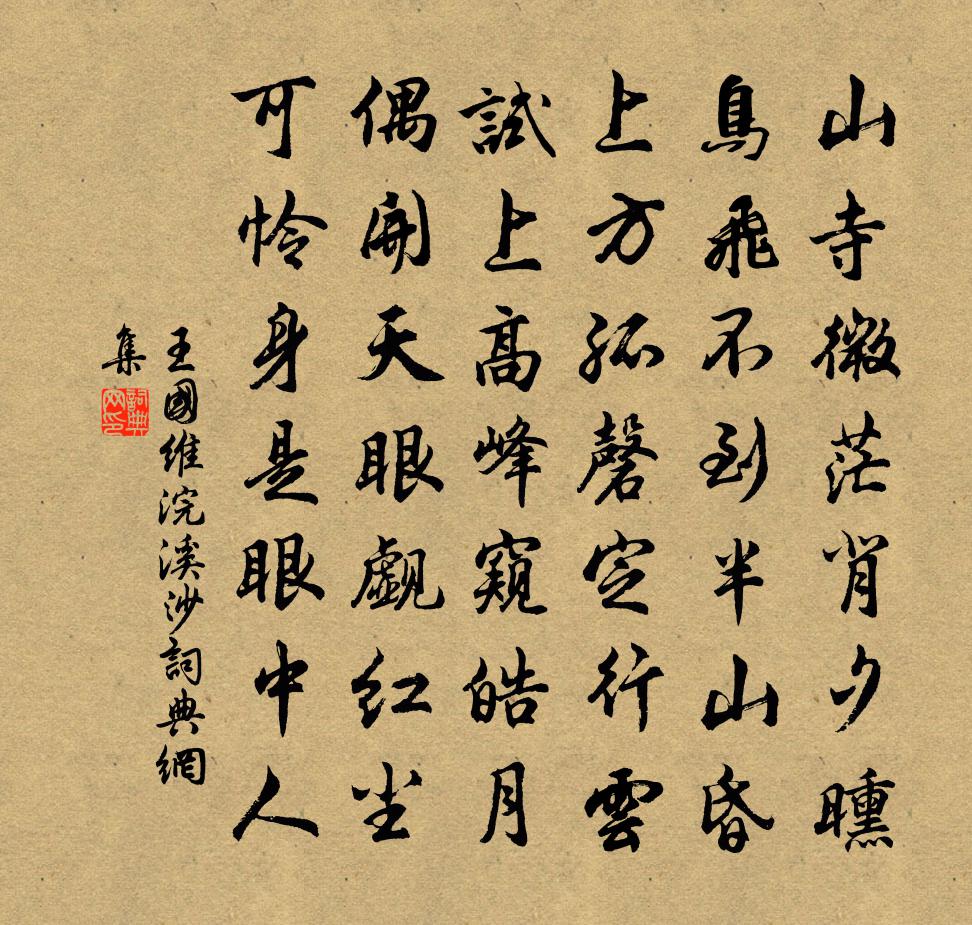 山寺微茫背夕曛
鳥飛不到半山昏
上方孤磬定行雲
試上高峰窺皓月
偶開天眼覷紅塵
可怜身是眼中人
王國維浣溪沙詞典網
集
詞典網印